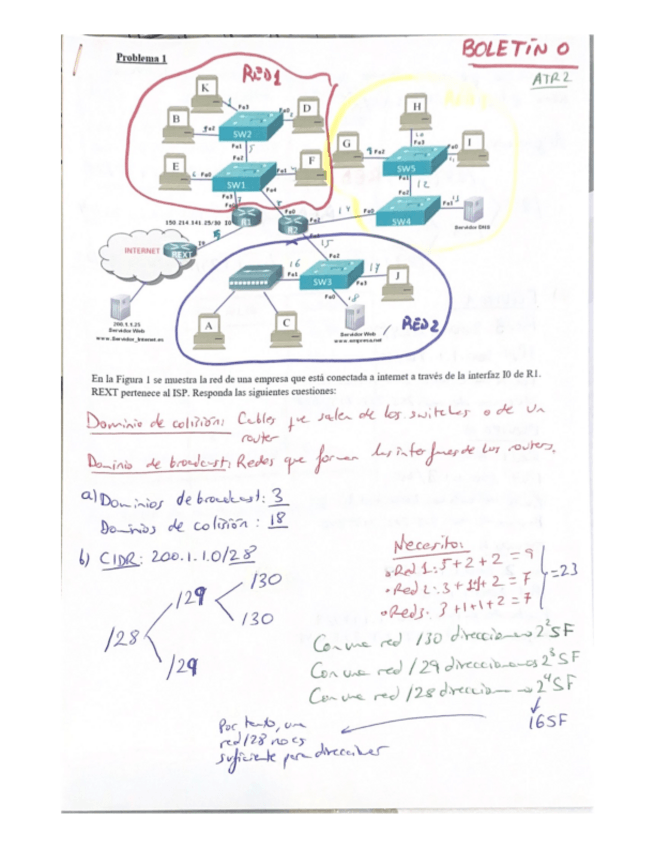 BOLETÍN 0
ATR2
Problema 1
RED1
K
B
D
E
F
SW2
SW1
Fa3
Fa0
Fa2
Fa1
Fa4
H
G
I
SW5
SW4
Servidor DNS
150.214.141.25/30 I0
R1
R2
INTERNET
REXT
200.1.1.25
Servidor Web
www.Servidor_Internet.es
A
C
SW3
J
Servidor Web
www.empresa.net
RED2
En la Figura 1 se muestra la red de una empresa que está conectada a internet a través de la interfaz I0 de R1.
REXT pertenece al ISP. Responda las siguientes cuestiones:
Dominio de colisión: Cables que salen de los switches o de un
router
Dominio de broadcast: Redes que forman las interfaces de los routers.
a) Dominios de broadcast: 3
Dominios de colisión: 18
b) CIDR: 200.1.1.0/28
/28
/29
/29
/30
/30
Necesito:
• Red 1: 5+2+2 = 9
• Red 2: 3+1+2 = 7
• Red 3: 3+1+1+2 = 7
=23
Con una red /30 direcciono 2²SF
Con una red /29 direccionamos 2³SF
Con una red /28 direcciono 2⁴SF
16SF
Por tanto, una
red /28 no es
suficiente para direccionar